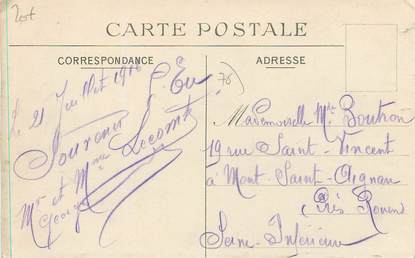 CARTE POSTALE
CORRESPONDANCE
ADRESSE
Le 21 Juillet
Eu
Souvenir
Mr et Mme Lecomte
76
Mademoiselle Mie Boutron
19 rue Saint-Vincent
à Mont-Saint-Aignan
(Près Rouen)
Seine-Inférieure